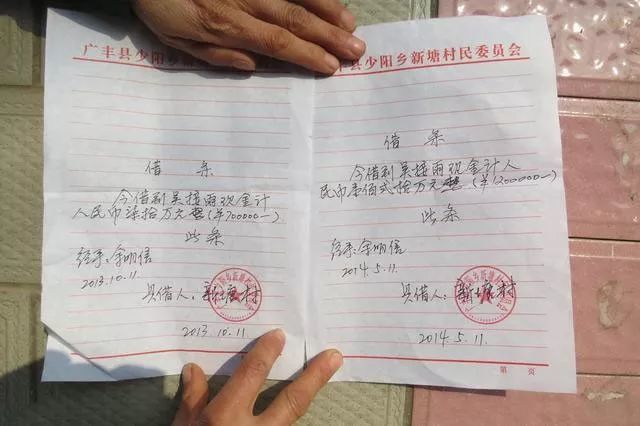 广丰县少阳乡新塘村民委员会
借条
今借到吴接雨现金计
人民币柒拾万元整(￥700000—)
此条
经手:余明信
2013.10.11.
具借人:新塘村
2013.10.11.
广丰县少阳乡新塘村民委员会
借条
今借到吴接雨现金计人
民币壹佰贰拾万元整(￥1200000—)
此条
经手:余明信
2014.5.11.
具借人:新塘村
2014.5.11.
第 页